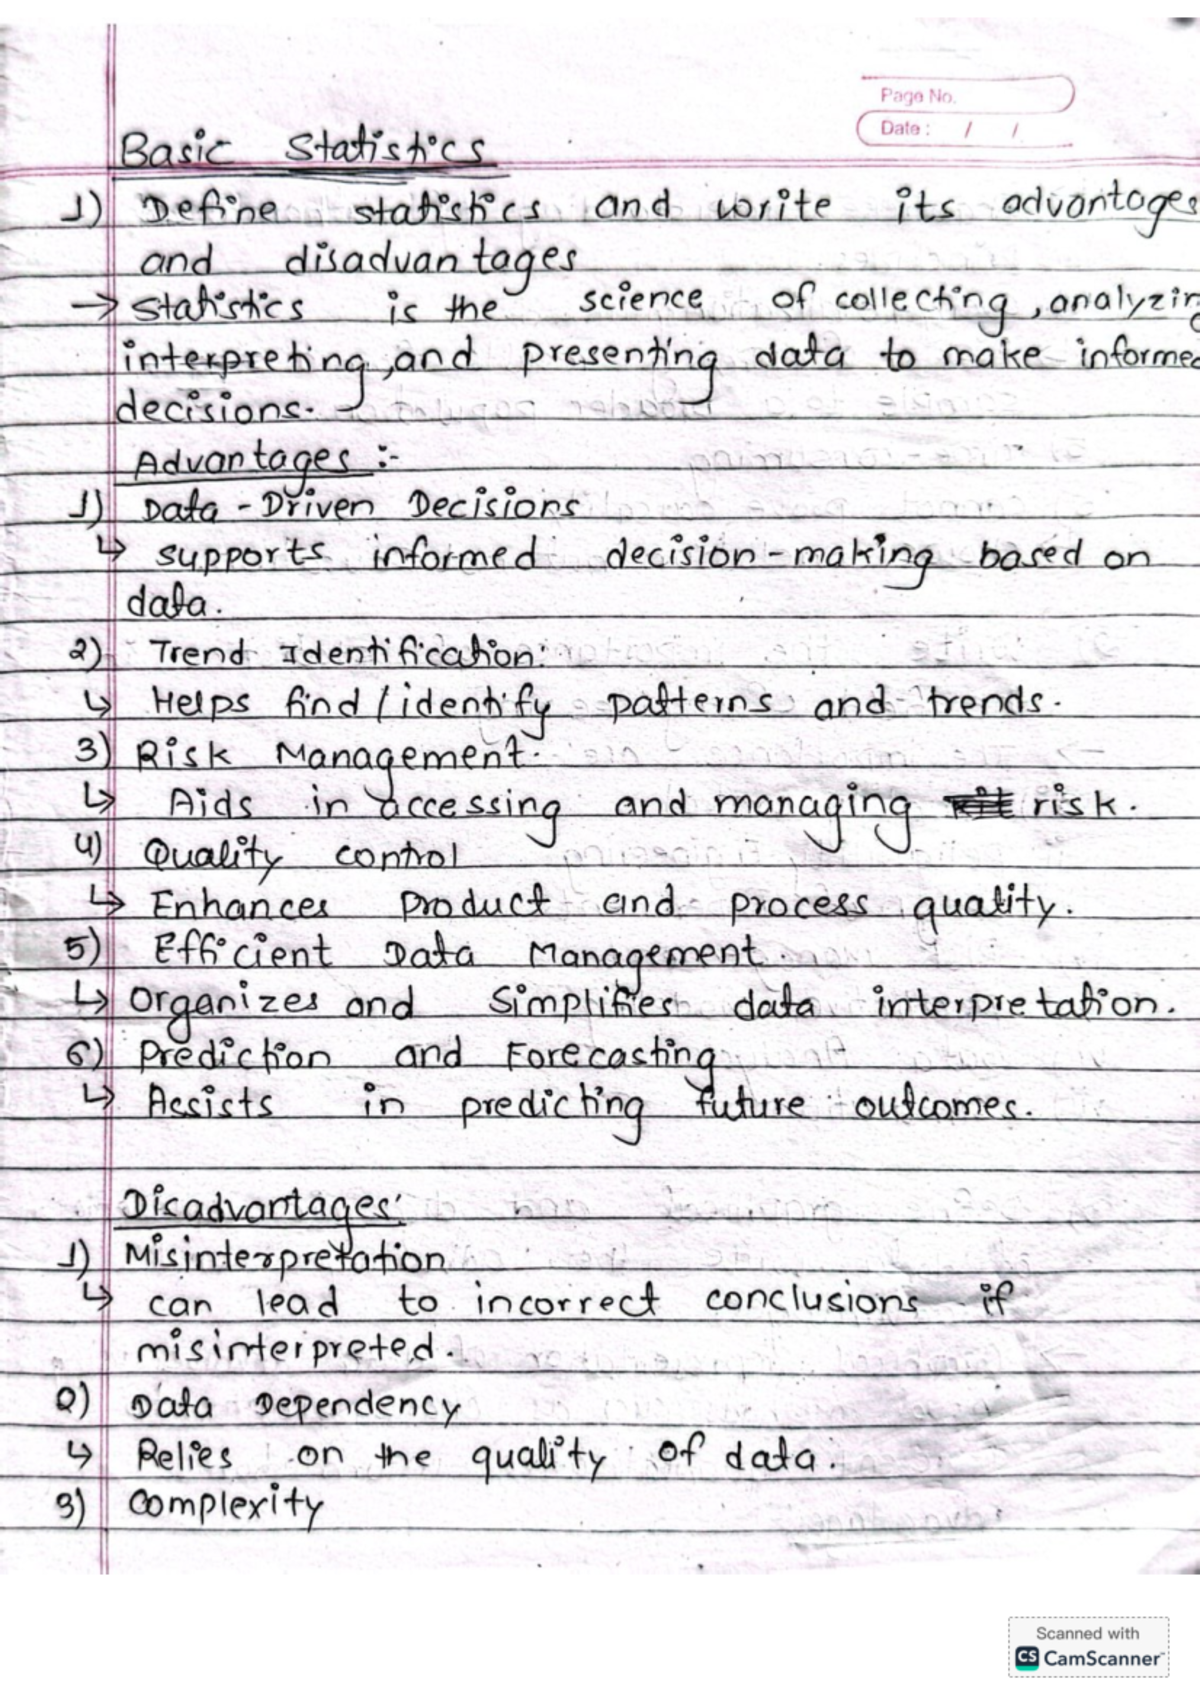 Page No.
Date : / /
Basic Statistics
1) Define statistics and write its advantages
and disadvantages
→ Statistics is the science of collecting, analyzing
interpreting, and presenting data to make informed
decisions.
Advantages :-
1) Data - Driven Decisions
↳ supports informed decision - making based on
data.
2) Trend Identification:
↳ Helps find / identify patterns and trends.
3) Risk Management.
↳ Aids in accessing and managing risk.
4) Quality control
↳ Enhances Product and process quality.
5) Efficient Data Management.
↳ Organizes and Simplifies data interpretation.
6) Prediction and Forecasting
↳ Assists in predicting future outcomes.
Disadvantages:
1) Misinterpretation
↳ can lead to incorrect conclusions if
misinterpreted.
2) Data Dependency
↳ Relies on the quality of data.
3) Complexity
Scanned with
CS CamScanner